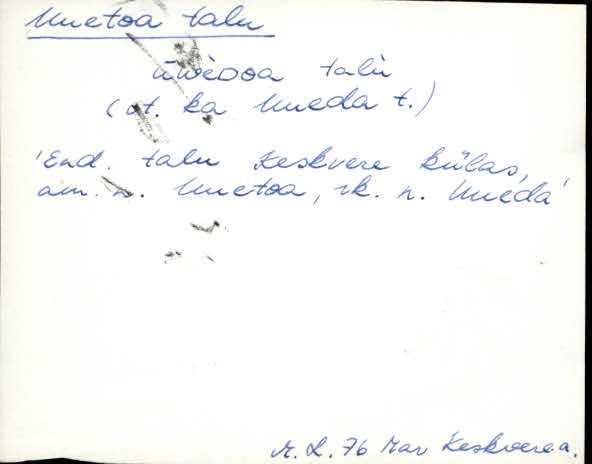 Unetoa talu
ùneᴅoa talù
(vt. ka Uueda t.)
'End. talu Keskvere külas,
am. n. Uuetoa, rk. n. Uueda'
M. L. 76 Mar Keskvere a.